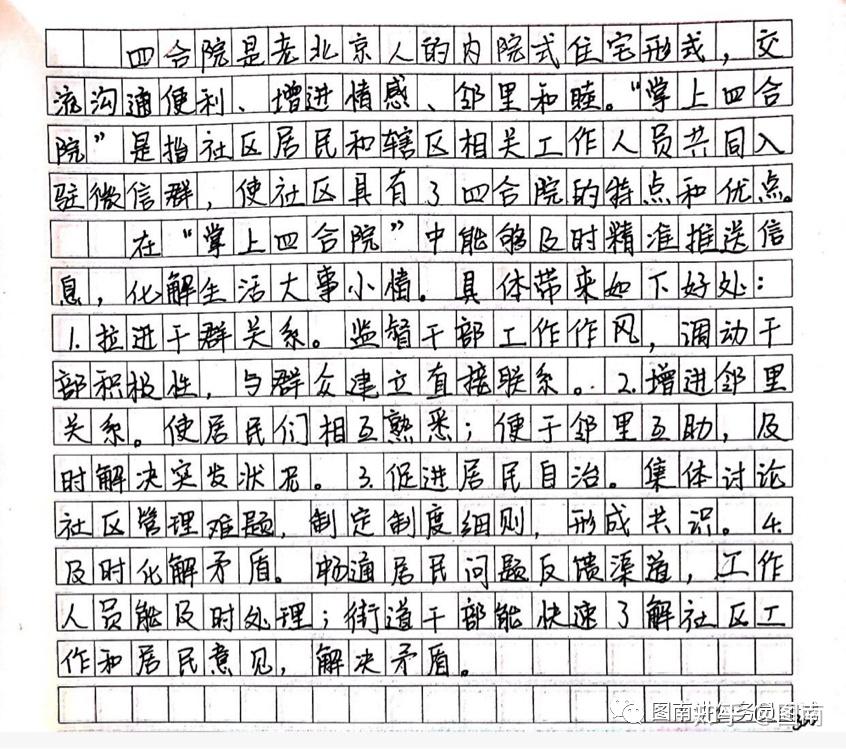 四合院是老北京人的内院式住宅形式，交
流沟通便利、增进情感、邻里和睦。“掌上四合
院”是指社区居民和辖区相关工作人员共同入
驻微信群，使社区具有了四合院的特点和优点。
在“掌上四合院”中能够及时精准推送信
息，化解生活大事小情。具体带来如下好处：
1.拉进干群关系。监督干部工作作风，调动干
部积极性，与群众建立直接联系。2.增进邻里
关系。使居民们相互熟悉；便于邻里互助，及
时解决突发状况。3.促进居民自治。集体讨论
社区管理难题，制定制度细则，形成共识。4.
及时化解矛盾。畅通居民问题反馈渠道，工作
人员能及时处理；街道干部能快速了解社区工
作和居民意见，解决矛盾。